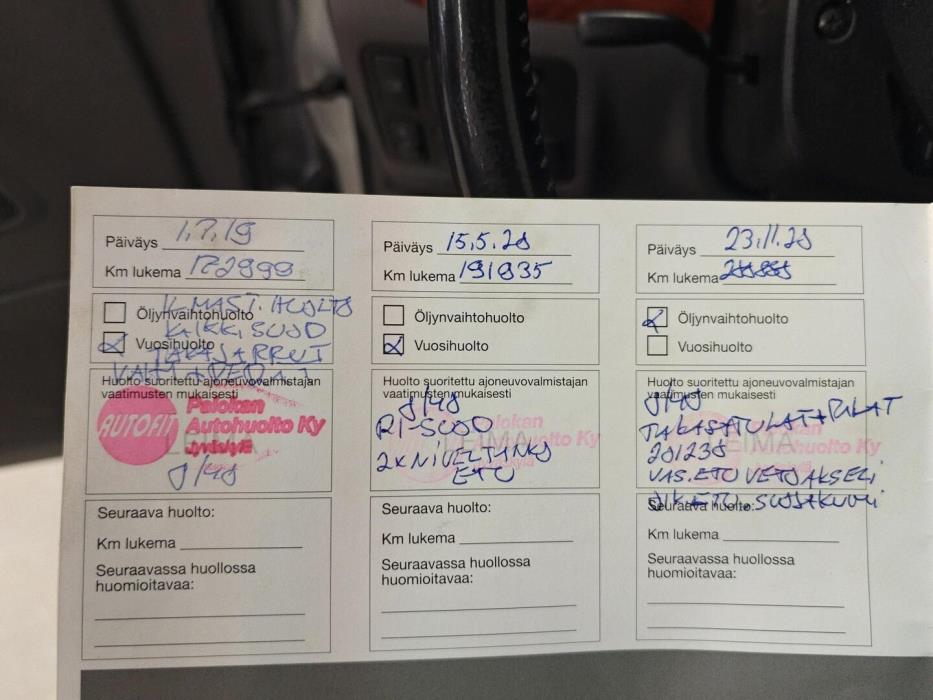 Päiväys 1.7.19
Km lukema 172999
Öljynvaihtohuolto
ILMAST. HUOLTO
KAIKKI SUOD
Vuosihuolto
TAKAJARRUT
Huolto suoritettu ajoneuvovalmistajan
vaatimusten mukaisesti
AUTOFIT
Palokan
Autohuolto Ky
Jyväskylä
Seuraava huolto:
Km lukema
Seuraavassa huollossa
huomioitavaa:
Päiväys 15.5.20
Km lukema 191935
Öljynvaihtohuolto
Vuosihuolto
Huolto suoritettu ajoneuvovalmistajan
vaatimusten mukaisesti
RI-SUOD
2x NIVELTANKO
ETU
Seuraava huolto:
Km lukema
Seuraavassa huollossa
huomioitavaa:
Päiväys 23.11.20
Km lukema
Öljynvaihtohuolto
Vuosihuolto
Huolto suoritettu ajoneuvovalmistajan
vaatimusten mukaisesti
TAKASATULAT + PALAT
201238
VAS. ETU VETOAKSELI
OIK. ETU. SUOJAKUMI
Seuraava huolto:
Km lukema
Seuraavassa huollossa
huomioitavaa: